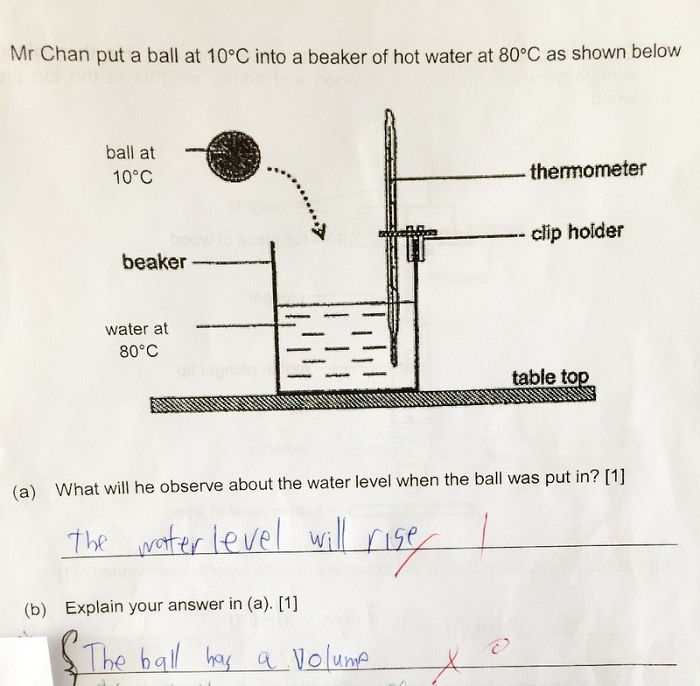 Mr Chan put a ball at 10°C into a beaker of hot water at 80°C as shown below
ball at
10°C
thermometer
clip holder
beaker
water at
80°C
table top
(a) What will he observe about the water level when the ball was put in? [1]
the water level will rise 1
(b) Explain your answer in (a). [1]
The ball has a volume 0